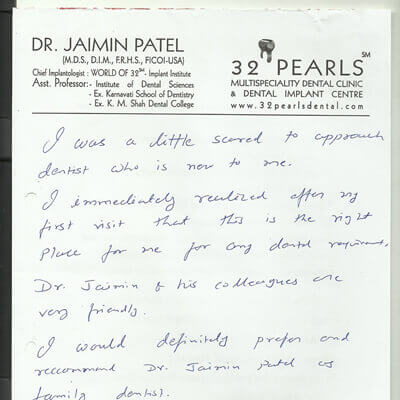 DR. JAIMIN PATEL
(M.D.S., D.I.M., F.R.H.S., FICOI-USA)
Chief Implantologist : WORLD OF 32SM- Implant Institute
Asst. Professor:- Institute of Dental Sciences
- Ex. Karnavati School of Dentistry
- Ex. K. M. Shah Dental College
32 PEARLS SM
MULTISPECIALITY DENTAL CLINIC
& DENTAL IMPLANT CENTRE
www.32pearlsdental.com
I was a little scared to approach
dentist who is new to me.
I immediately realized after my
first visit that this is the right
place for me for any dental requirement.
Dr. Jaimin & his colleagues are
very friendly.
I would definitely prefer and
recommend Dr. Jaimin Patel as
family dentist.